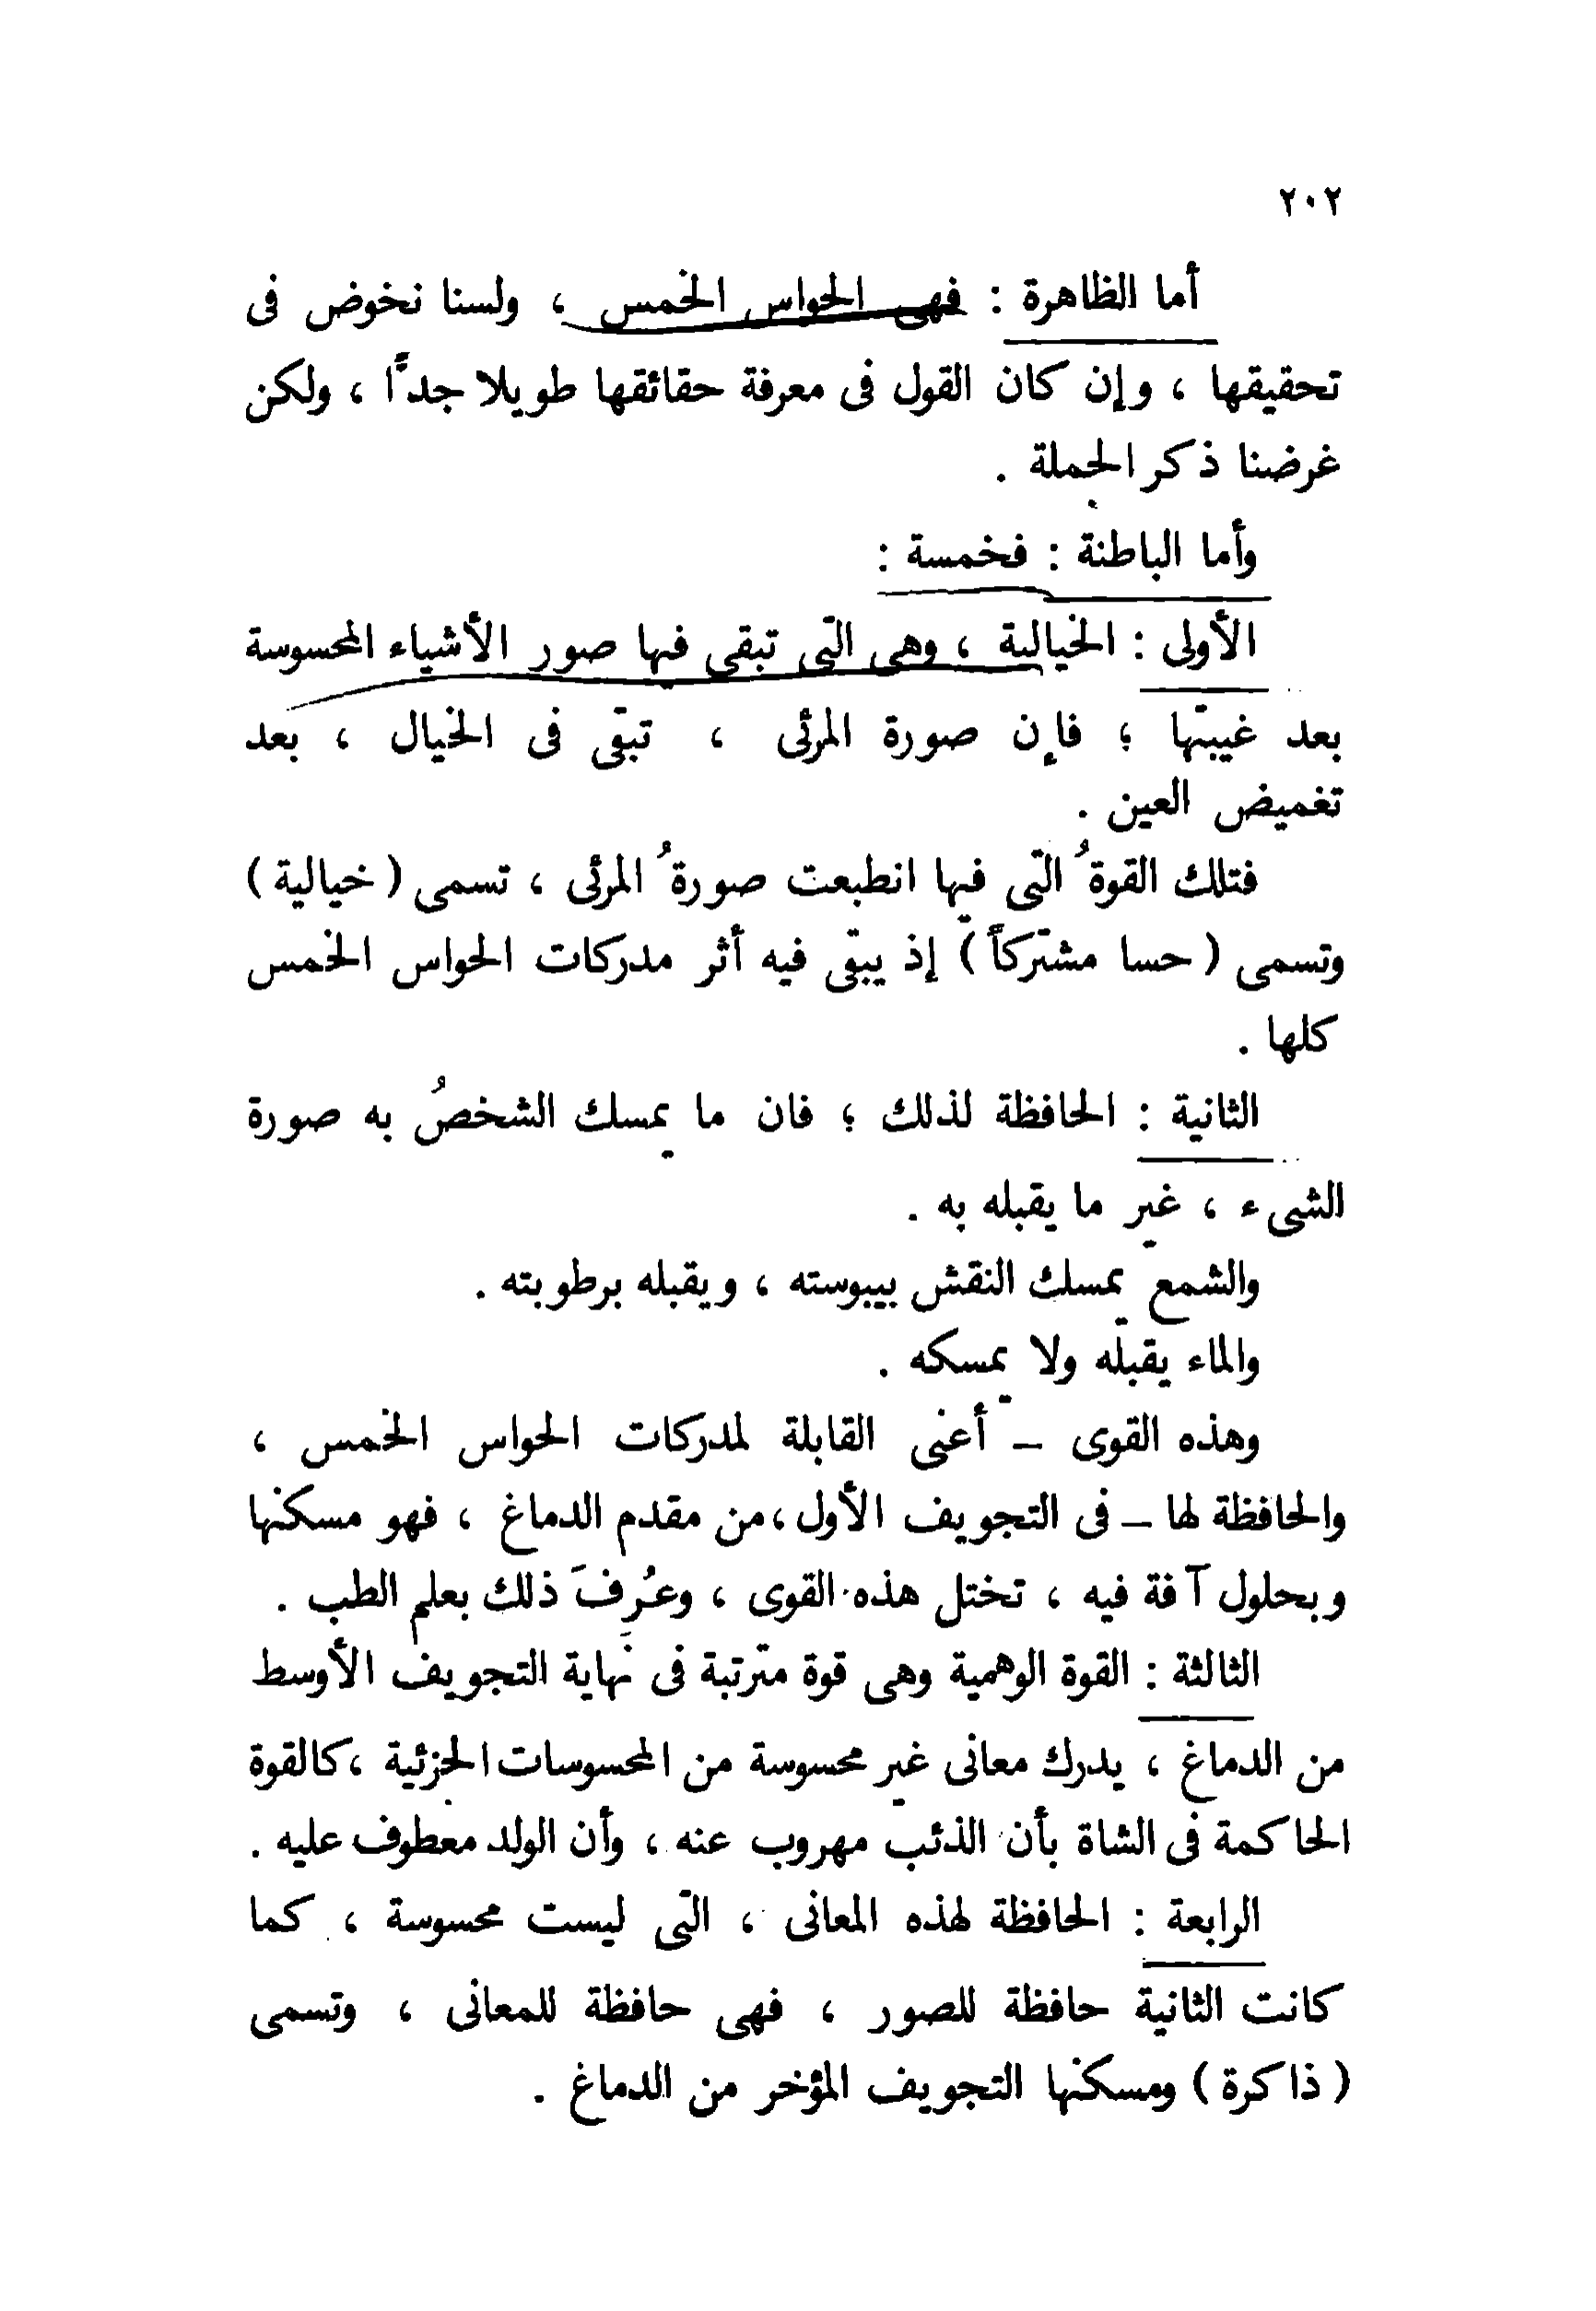 ٢٠٢
أما الظاهرة : فهى الحواس الخمس ، ولسنا نخوض فى
تحقيقها ، وإن كان القول فى معرفة حقائقها طويلا جدًّا ، ولكن
غرضنا ذكر الجملة .
وأما الباطنة : فخمسة :
الأولى : الخيالية ، وهى التى تبقى فيها صور الأشياء المحسوسة
بعد غيبتها ؛ فإن صورة المرئى ، تبقى فى الخيال ، بعد
تغميض العين .
فتلك القوةُ التى فيها انطبعت صورةُ المرئى ، تسمى ( خيالية )
وتسمى ( حسا مشتركاً ) إذ يبقى فيه أثر مدركات الحواس الخمس
كلها .
الثانية : الحافظة لذلك ؛ فان ما يمسك الشخصُ به صورة
الشىء ، غير ما يقبله به .
والشمع يمسك النقش بيبوسته ، ويقبله برطوبته .
والماء يقبله ولا يمسكه .
وهذه القوى – أعنى القابلة لمدركات الحواس الخمس ،
والحافظة لها – فى التجويف الأول ، من مقدم الدماغ ، فهو مسكنها
وبحلول آفة فيه ، تختل هذه القوى ، وعُرِفَ ذلك بعلم الطب .
الثالثة : القوة الوهمية وهى قوة مترتبة فى نهاية التجويف الأوسط
من الدماغ ، يدرك معانى غير محسوسة من المحسوسات الجزئية ، كالقوة
الحاكمة فى الشاة بأن الذئب مهروب عنه ، وأن الولد معطوف عليه .
الرابعة : الحافظة لهذه المعانى ، التى ليست محسوسة ، كما
كانت الثانية حافظة للصور ، فهى حافظة للمعانى ، وتسمى
( ذاكرة ) ومسكنها التجويف المؤخر من الدماغ .